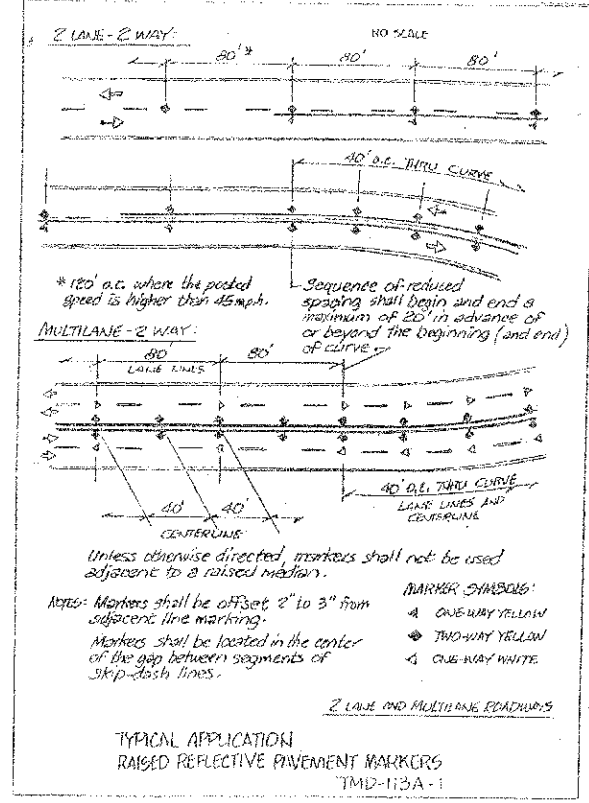 2 LANE-2 WAY:
NO SCALE
80'*
80'
80'
40' o.c. THRU CURVE
* 120' o.c. where the posted
speed is higher than 45 mph.
Sequence of reduced
spacing shall begin and end a
maximum of 20' in advance of
or beyond the beginning (and end)
of curve.
MULTILANE-2 WAY:
80'
80'
LANE LINES
40'
40'
CENTERLINE
40' o.c. THRU CURVE
LANE LINES AND
CENTERLINE
Unless otherwise directed, markers shall not be used
adjacent to a raised median.
Notes: Markers shall be offset 2" to 3" from
adjacent line marking.
Markers shall be located in the center
of the gap between segments of
skip-dash lines.
MARKER SYMBOLS:
ONE-WAY YELLOW
TWO-WAY YELLOW
ONE-WAY WHITE
2 LANE AND MULTILANE ROADWAYS
TYPICAL APPLICATION
RAISED REFLECTIVE PAVEMENT MARKERS
TMD-113A-1